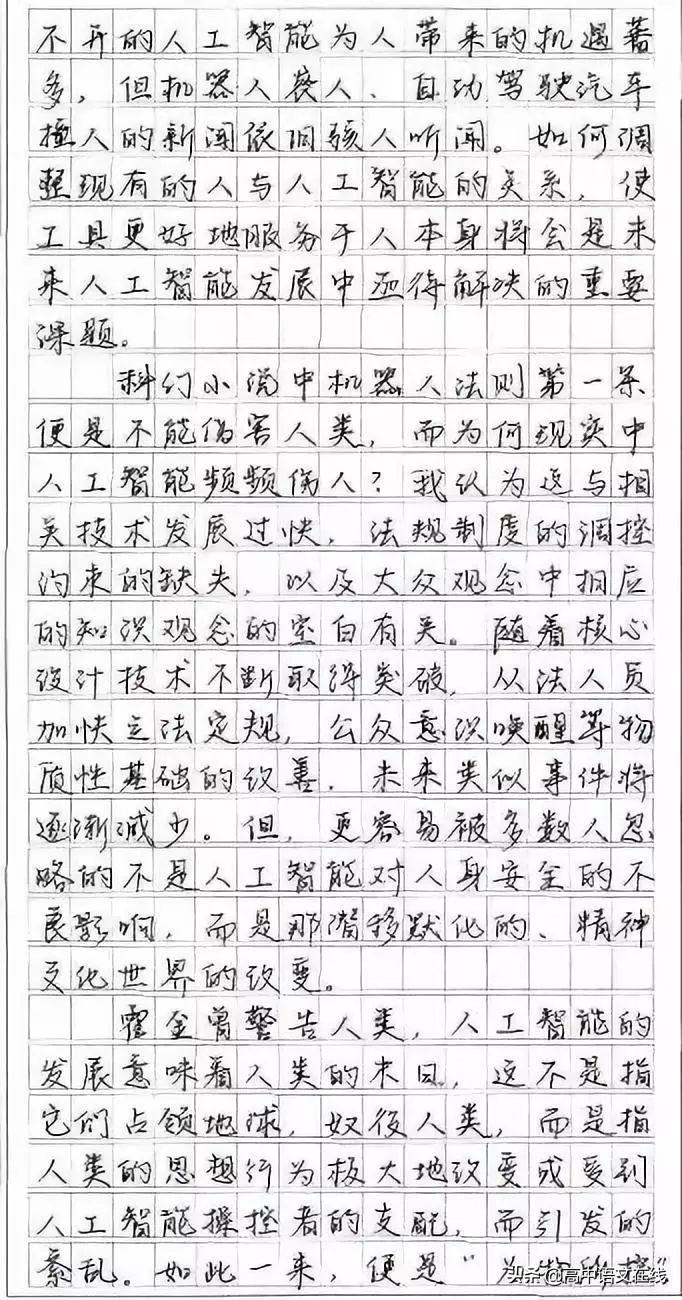 不开的人工智能为人带来的机遇蕃
多，但机器人袭人、自动驾驶汽车
撞人的新闻依旧骇人听闻。如何调
整现有的人与人工智能的关系，使
工具更好地服务于人本身将会是未
来人工智能发展中亟待解决的重要
课题。
科幻小说中机器人法则第一条
便是不能伤害人类，而为何现实中
人工智能频频伤人？我认为这与相
关技术发展过快，法规制度的调控
约束的缺失，以及大众观念中相应
的知识观念的空白有关。随着核心
设计技术不断取得突破，从法人员
加快立法定规，公众意识唤醒等物
质性基础的改善，未来类似事件将
逐渐减少。但，更容易被多数人忽
略的不是人工智能对人身安全的不
良影响，而是那潜移默化的、精神
文化世界的改变。
霍金曾警告人类，人工智能的
发展意味着人类的末日，这不是指
它们占领地球，奴役人类，而是指
人类的思想行为极大地改变或受到
人工智能操控者的支配，而引发的
紊乱。如此一来，便是“为物所
头条@高中语文在线